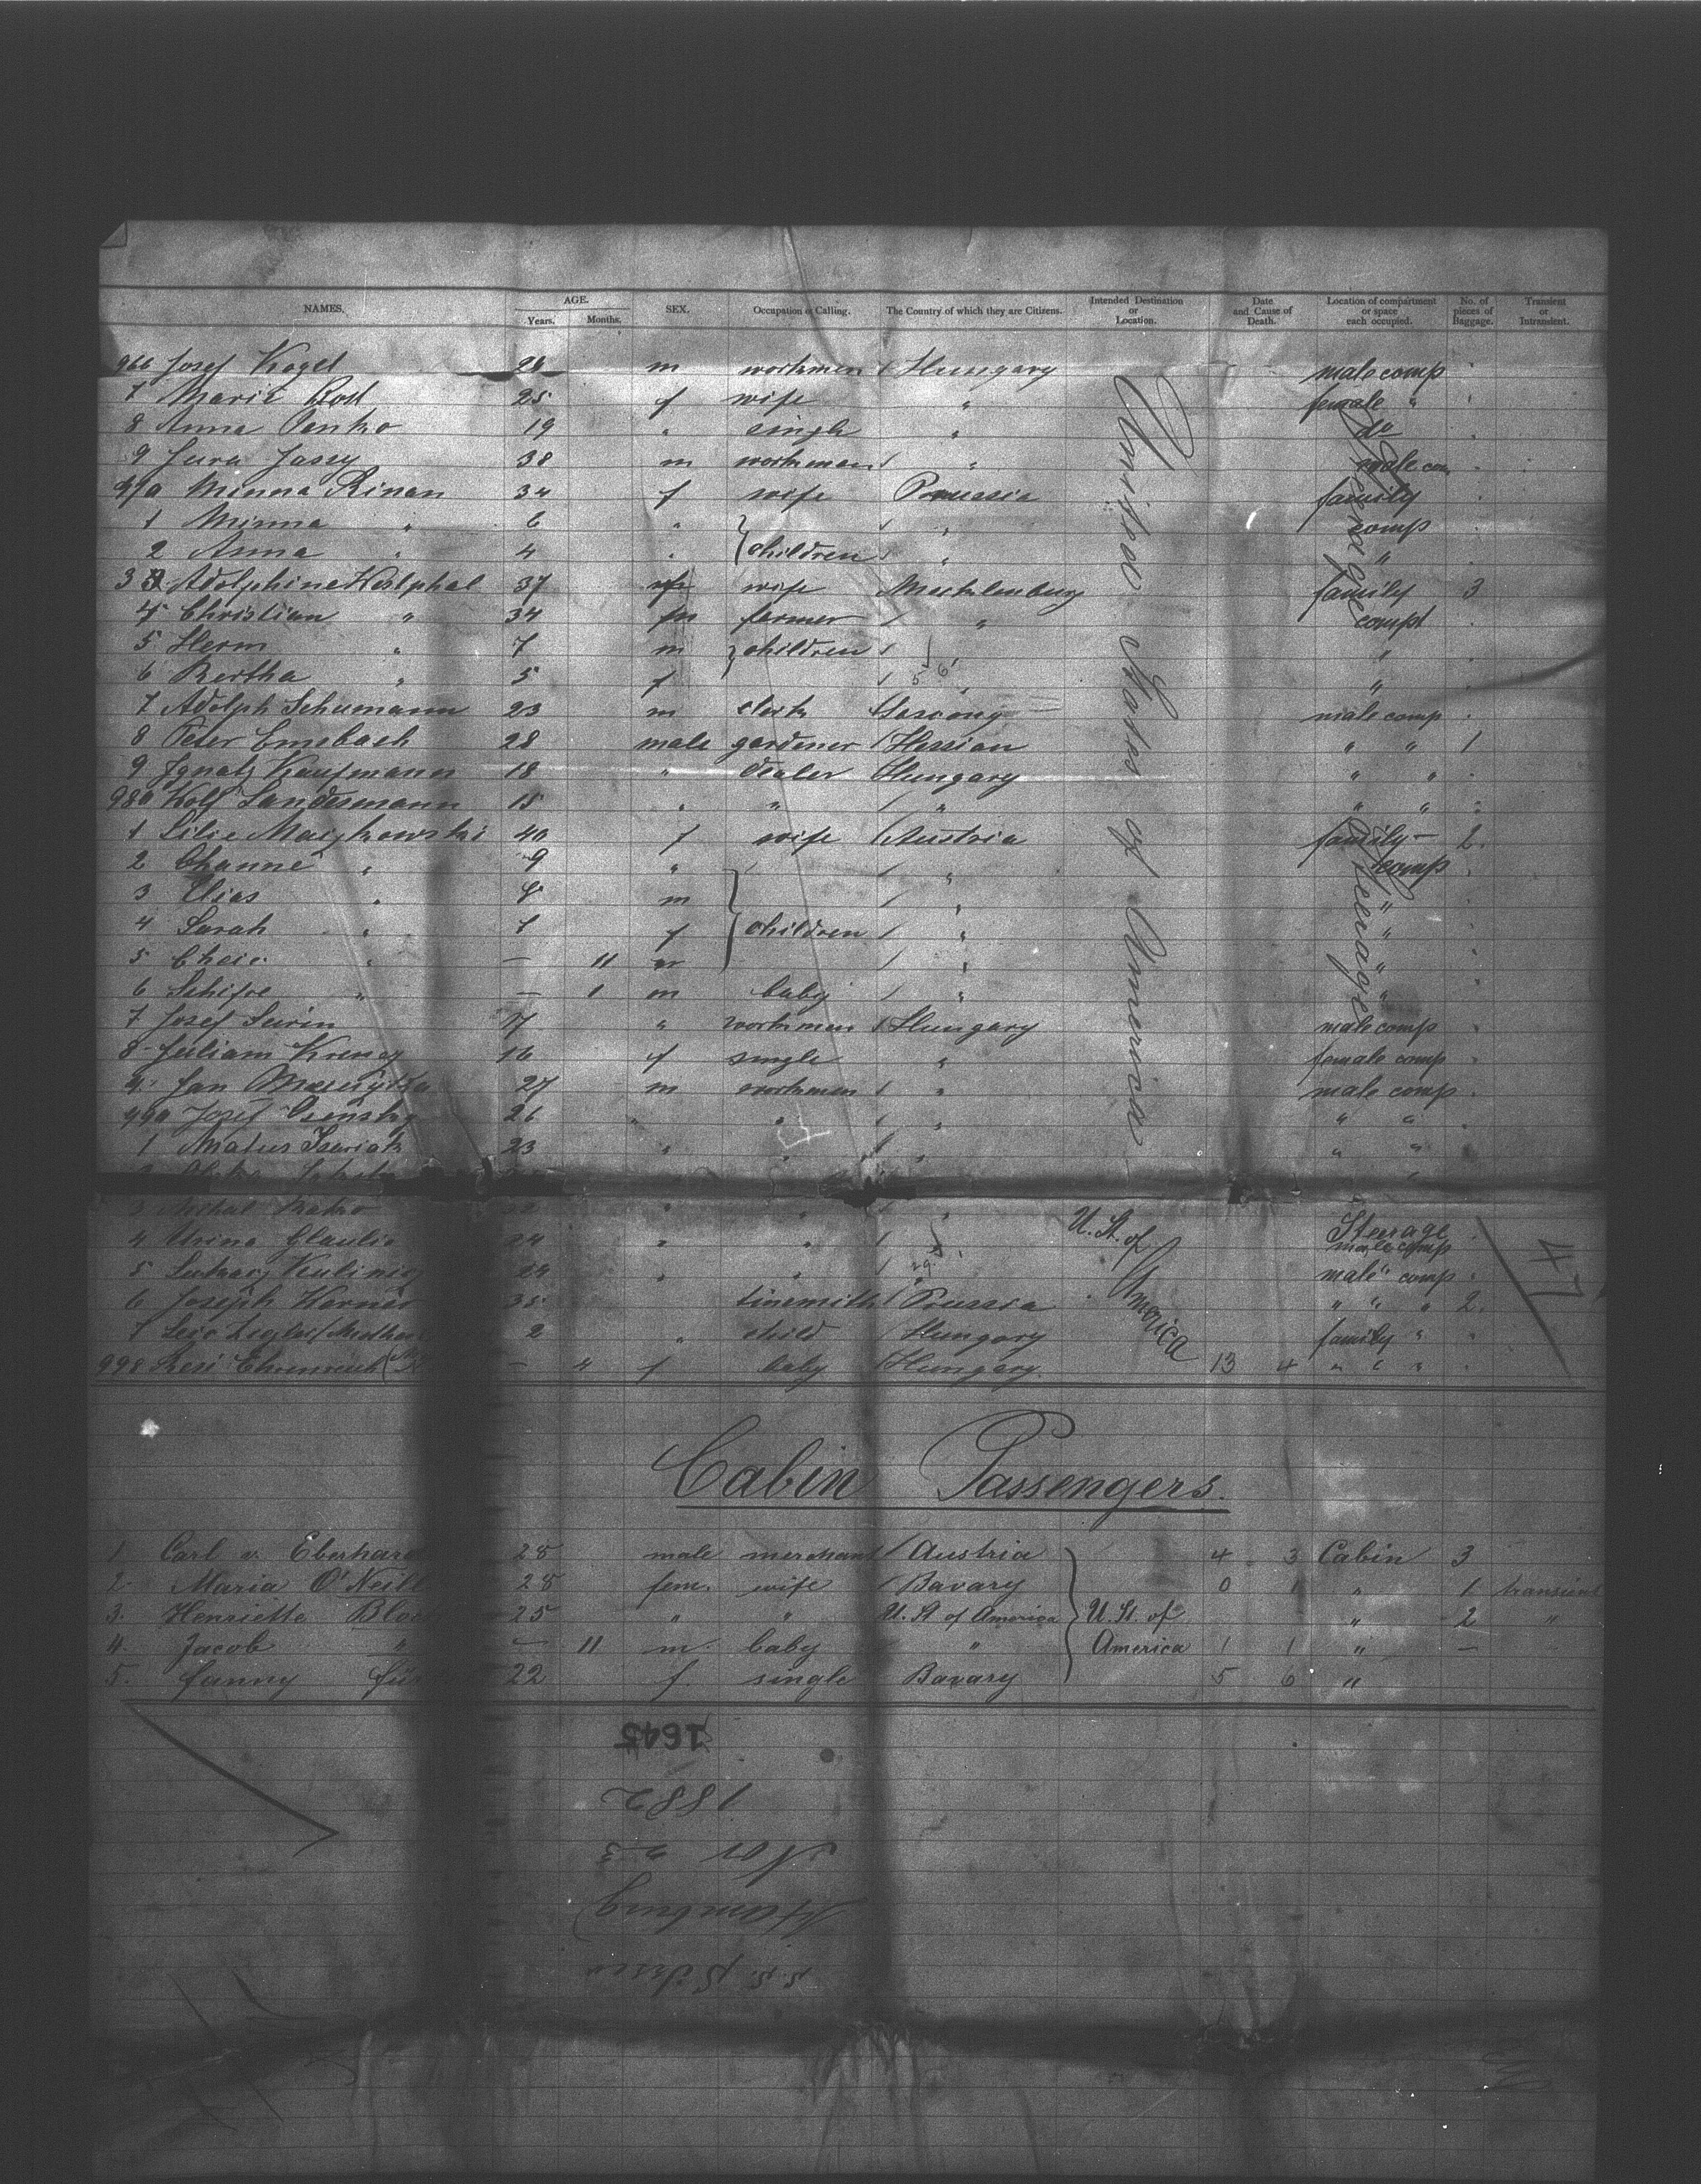 NAMES. AGE. Years. Months. SEX. Occupation or Calling. The Country of which they are Citizens. Intended Destination or Location. Date and Cause of Death. Location of compartment or space each occupied. No. of pieces of Baggage. Transient or Intransient.
966 Josef Kogel m workmen Hungary male comp
7 Marie 25 f wife " female "
8 Anna Penko 19 " single " do
9 Jura Jassy 38 m workmen " male com
970 Minna Rinan 34 f wife Prussia family
1 Minna " 6 " " comp
2 Anna " 4 " children " "
3 Adolphine Westphal 37 wife Mecklenburg family 3
4 Christian " 34 m farmer " compt
5 Herm " 7 m children "
6 Bertha " 5 f " "
7 Adolph Schumann 23 m clerk male comp
8 Peter Emebach 28 male gardener Hessian " " 1
9 Ignatz Kaufmann 18 " dealer Hungary " "
980 Wolf Landesmann 15 " " " " "
1 Lilie 40 f wife Austria family 2.
2 Channe " 9 " " comp
3 Elias " 8 m " "
4 Sarah " 7 f children " "
5 " — 11 " "
6 Schifre " — 1 m baby " "
7 Josef 17 " workmen Hungary male comp
8 Juliam 16 f single " female comp
Jan 27 m workmen " male comp
990 Josef 26 " " " " "
1 Matus 23 " " " " "
3 Michal " " "
4 24 " " Steerage male comp
5 24 " " " male comp
6 Joseph Werner 35 tinsmith Prussia " " " 2.
7 2 " child Hungary family "
998 Resi Ehrenreich — 4 f baby Hungary. 13 4 " " "
United States of America
Steerage
U. St. of America
47
Cabin Passengers.
1 Carl v. Eberhard 28 male merchant Austria 4 3 Cabin 3
2. Maria O'Neill 28 fem. wife Bavary 0 1 " 1 transient
3. Henriette Bloch 25 " " U. St. of America U. St. of " 2 "
4. Jacob " — 11 m. baby " America 1 1 " —
5. Fanny 22 f. single Bavary 5 6 "
1645
1882
Nov 23
Hamburg
S. S.